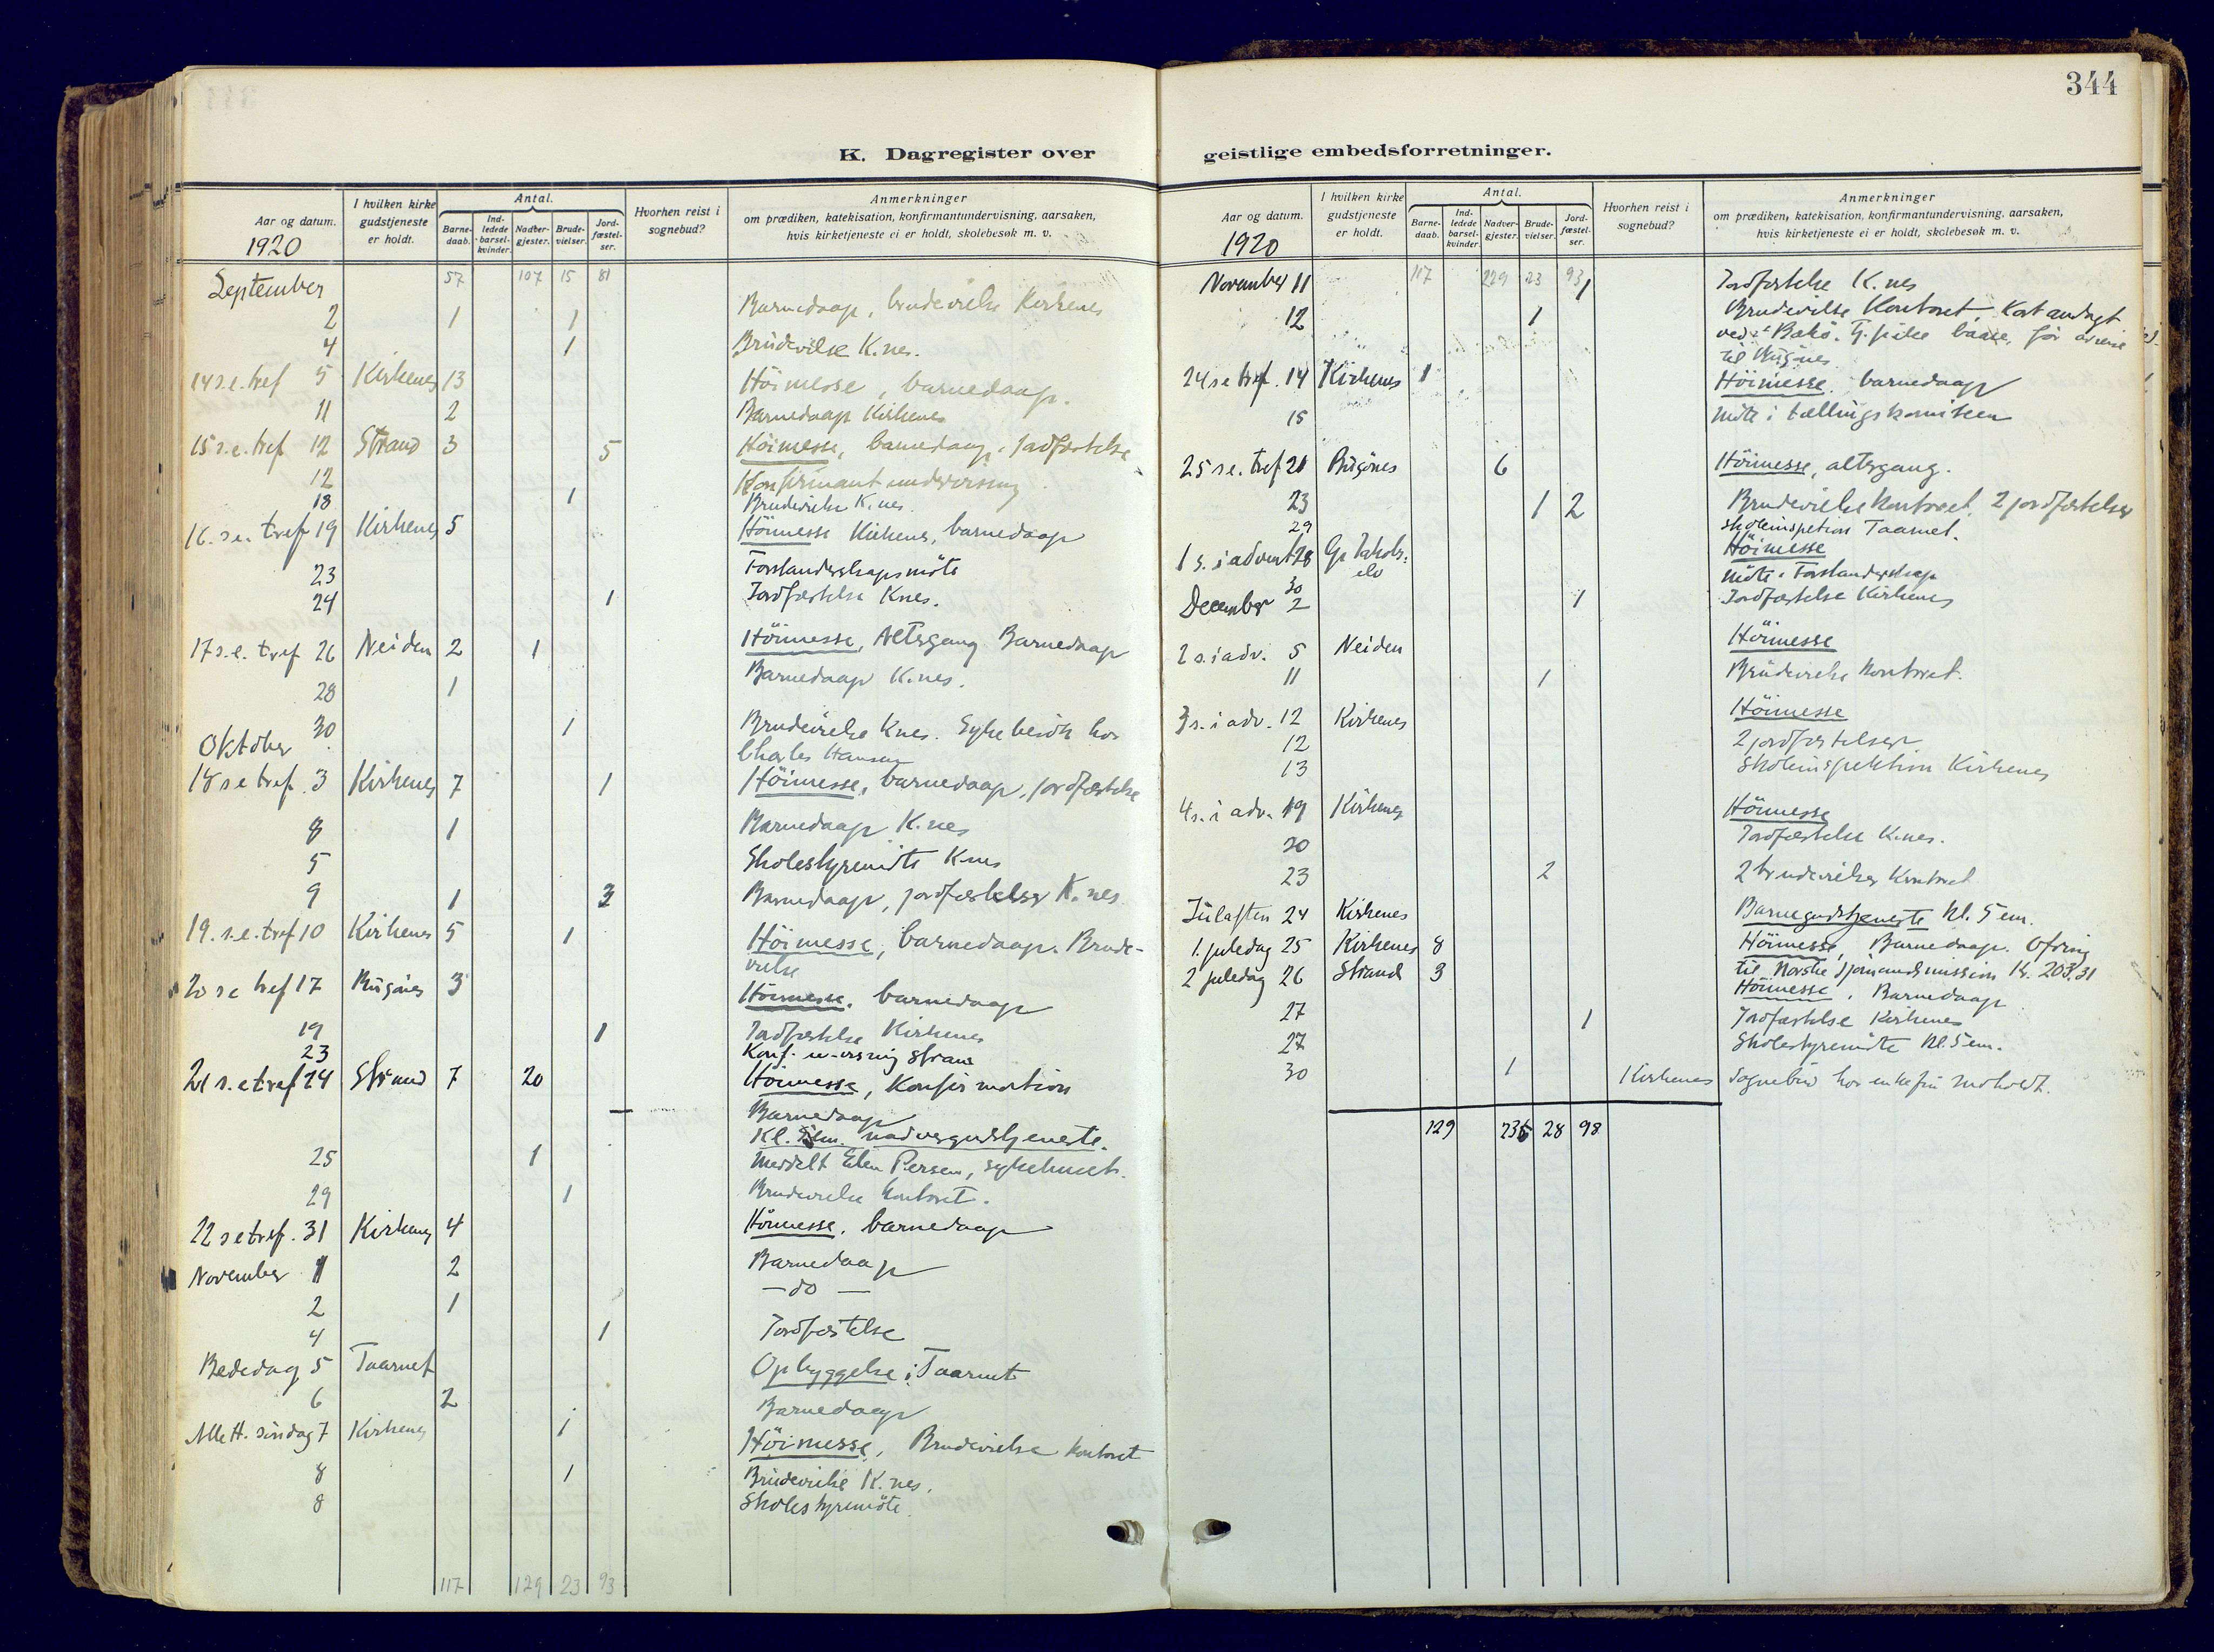 344
K. Dagregister over
Aar og datum.
1920
I hvilken kirke gudstjeneste er holdt.
Antal.
Barne-daab.
Ind-ledede barsel-kvinder.
Nadver-gjester.
Brude-vielser.
Jord-fæstel-ser.
Hvorhen reist i sognebud?
Anmerkninger
om prædiken, katekisation, konfirmantundervisning, aarsaken,
hvis kirketjeneste ei er holdt, skolebesøk m. v.
September 57 107 15 81
2 1 1 Barnedaap, brudevielse Kirkenes
4 1 Brudevielse K.nes.
14 s.e. tref 5 Kirkenes 13 Höimesse, barnedaap.
11 2 Barnedaap Kirkenes
15 s.e. tref 12 Strand 3 5 Höimesse, barnedaap, jordfæstelse
12 Konfirmantundervisning.
18 1 Brudevielse K.nes.
16. s.e. tref 19 Kirkenes 5 Höimesse Kirkenes, barnedaap
23 Forstanderskapsmöte
24 1 Jordfæstelse Knes.
17 s.e. tref 26 Neiden 2 1 Höimesse, Altergang Barnedaap
28 1 Barnedaap K.nes.
30 1 Brudevielse Knes. Sykebesök hos
Oktober Charles Hansen
18 s e tref. 3 Kirkenes 7 1 Höimesse, barnedaap, jordfæstelse
8 1 Barnedaap K.nes
5 Skolestyremöte Knes
9 1 3 Barnedaap, jordfæstelser K.nes
19. s.e. tref 10 Kirkenes 5 1 Höimesse, barnedaap. Brude-
vielse
20 s e tref 17 Bugönes 3 Höimesse. barnedaap
19 1 Jordfæstelse Kirkenes
23 Konf. u-visning Strand
21 s.e tref 24 Strand 7 20 Höimesse, Konfirmation
Barnedaap
Kl. em. nadvergudstjeneste.
25 1 Meddelt Elen Persen, sykehuset.
29 1 Brudevielse kontoret.
22 s e tref. 31 Kirkenes 4 Höimesse, barnedaap
November 1 2 Barnedaap
2 1 — do —
4 1 Jordfæstelse
Bededag 5 Taarnet Opbyggelse i Taarnet
6 2 Barnedaap
Alle H. söndag 7 Kirkenes 1 Höimesse, Brudevielse kontoret
8 1 Brudevielse K.nes.
8 Skolestyremöte.
117 129 23 93
geistlige embedsforretninger.
Aar og datum.
1920
I hvilken kirke gudstjeneste er holdt.
Antal.
Barne-daab.
Ind-ledede barsel-kvinder.
Nadver-gjester.
Brude-vielser.
Jord-fæstel-ser.
Hvorhen reist i sognebud?
Anmerkninger
om prædiken, katekisation, konfirmantundervisning, aarsaken,
hvis kirketjeneste ei er holdt, skolebesøk m. v.
117 229 23 93
November 11 1 Jordfæstelse K.nes
12 1 Brudevielse Kontoret. Kort andagt
ved baare, før avreise
til Bugönes
24 s e tref. 14 Kirkenes 1 Höimesse. barnedaap
15 Möte i tællingskomiteen
25 s e. tref 21 Bugönes 6 Höimesse, altergang.
23 1 2 Brudevielse Kontoret. 2 jordfæstelser
29 Skoleinspektion Taarnet.
1 s. i advent 28 Gr. Jakobs-elv Höimesse
30 Möte i Forstanderskap
December 2 1 Jordfæstelse Kirkenes
2 s. i adv. 5 Neiden Höimesse
11 1 Brudevielse Kontoret.
3 s. i adv. 12 Kirkenes Höimesse
12 2 jordfæstelser
13 Skoleinspektion Kirkenes
4 s. i adv. 19 Kirkenes Höimesse
20 Jordfæstelse K.nes.
23 2 2 brudevielser Kontoret
Julaften 24 Kirkenes Barnegudstjeneste Kl. 5 em.
1. juledag 25 Kirkenes 8 Höimesse, Barnedaap. Ofring
til Norske Sjömandsmission Kr. 203.31
2 juledag 26 Strand 3 Höimesse, Barnedaap
27 1 Jordfæstelse Kirkenes
27 Skolestyremöte kl. 5 em.
30 1 Kirkenes Sognebud hos enkefru Moholdt.
129 236 28 98